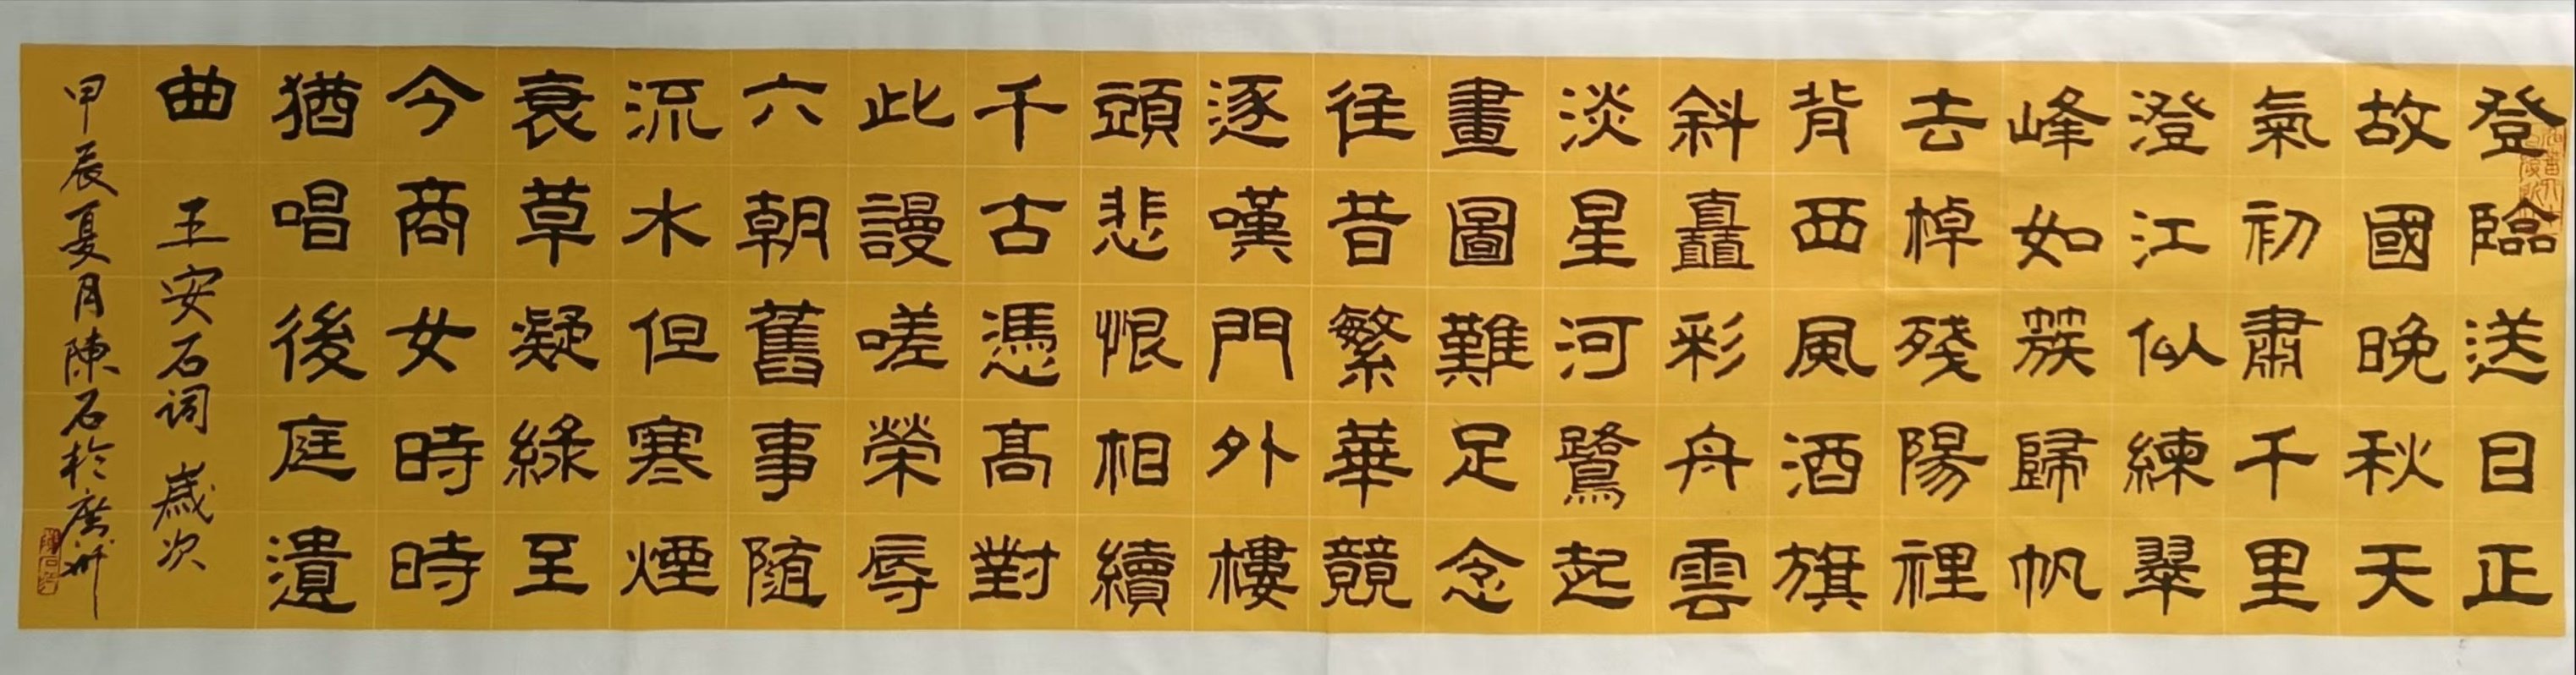 登臨送目正
故國晚秋天
氣初肅千里
澄江似練翠
峰如簇歸帆
去棹殘陽裡
背西風酒旗
斜矗彩舟雲
淡星河鷺起
畫圖難足念
往昔繁華競
逐嘆門外樓
頭悲恨相續
千古憑高對
此謾嗟榮辱
六朝舊事隨
流水但寒煙
衰草凝綠至
今商女時時
猶唱後庭遺
曲 王安石詞 歲次
甲辰夏月陳石於廣州